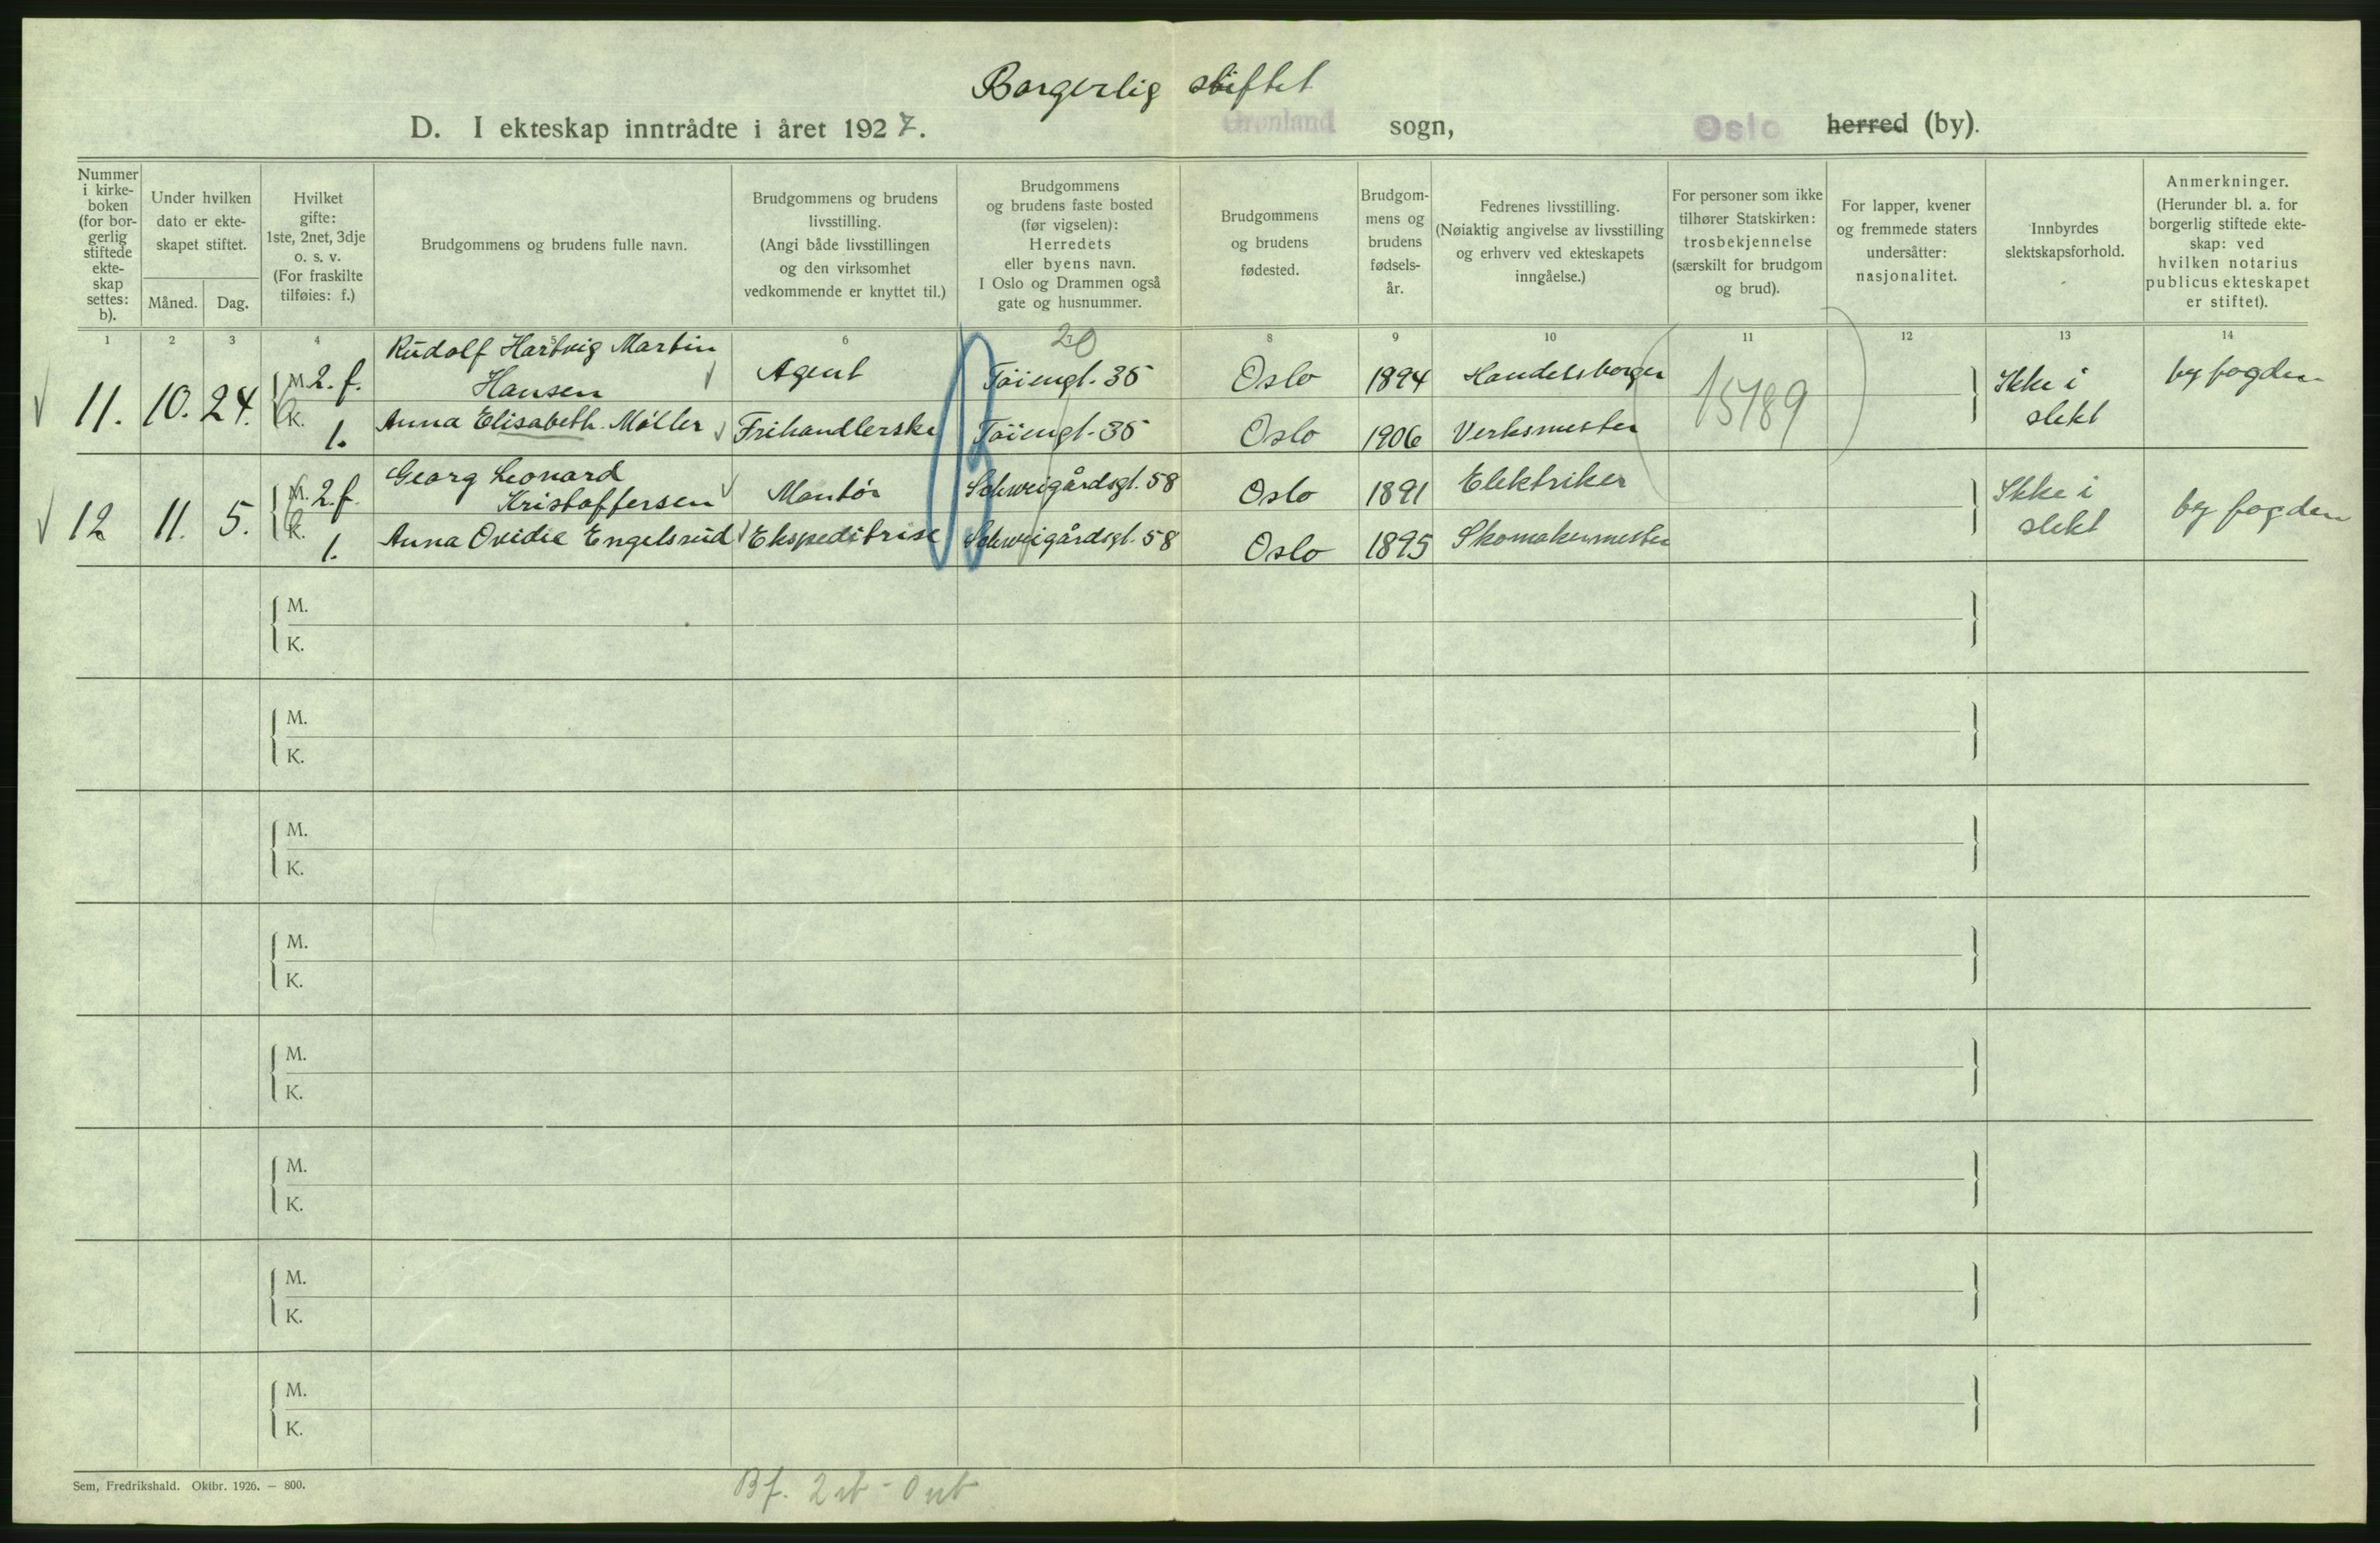 Borgerlig stiftet
D. I ekteskap inntrådte i året 1927. Grønland sogn, Oslo herred (by).
Nummer i kirke-boken (for bor-gerlig stiftede ekte-skap settes: b).
Under hvilken dato er ekte-skapet stiftet.
Måned. Dag.
Hvilket gifte: 1ste, 2net, 3dje o. s. v. (For fraskilte tilføies: f.)
Brudgommens og brudens fulle navn.
Brudgommens og brudens livsstilling. (Angi både livsstillingen og den virksomhet vedkommende er knyttet til.)
Brudgommens og brudens faste bosted (før vigselen): Herredets eller byens navn. I Oslo og Drammen også gate og husnummer.
Brudgommens og brudens fødested.
Brudgom-mens og brudens fødsels-år.
Fedrenes livsstilling. (Nøiaktig angivelse av livsstilling og erhverv ved ekteskapets inngåelse.)
For personer som ikke tilhører Statskirken: trosbekjennelse (særskilt for brudgom og brud).
For lapper, kvener og fremmede staters undersåtter: nasjonalitet.
Innbyrdes slektskapsforhold.
Anmerkninger. (Herunder bl. a. for borgerlig stiftede ekte-skap: ved hvilken notarius publicus ekteskapet er stiftet).
1 2 3 4 5 6 20 8 9 10 11 12 13 14
11. 10. 24. M. 2. f. Rudolf Hartvig Martin Hansen Agent Töiengt. 35 Oslo 1894 Handelsborger 15789 Ikke i slekt byfogden
K. 1. Anna Elisabeth Möller Frihandlerske Töiengt. 35 Oslo 1906 Verksmester
12 11. 5. M. 2. f. Georg Leonard Kristoffersen Montör Schweigårdsgt. 58 Oslo 1891 Elektriker Ikke i slekt byfogden
K. 1. Anna Ovidie Engelsrud Ekspeditrise Schweigårdsgt. 58 Oslo 1895 Skomakermester
M.
K.
M.
K.
M.
K.
M.
K.
M.
K.
M.
K.
M.
K.
M.
K.
Sem, Fredrikshald. Oktbr. 1926. — 800.
Bf. 2